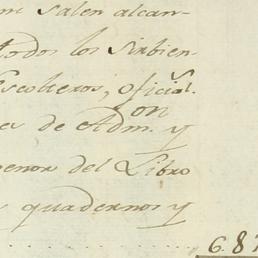 salen alcan-
todos los sirbien-
Escolteros, oficial.s
es de Adm.on y
penor del Libro
quadernos y
6.87